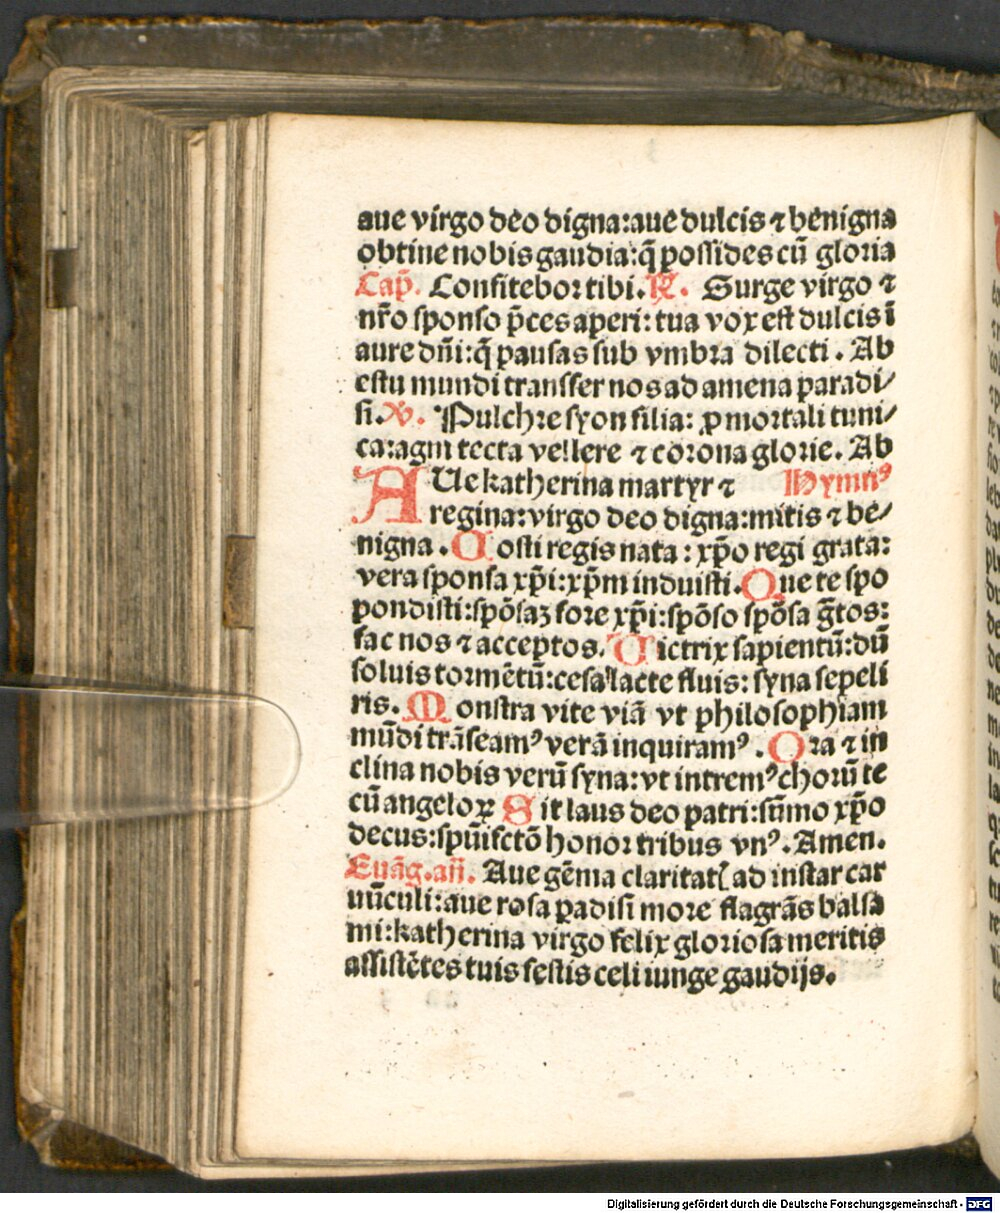 aue virgo deo digna:aue dulcis ⁊ benigna
obtine nobis gaudia:q̄ possides cū gloria
Cap̄. Confitebor tibi. R̄. Surge virgo ⁊
nr̄o sponso p̄ces aperi: tua vox est dulcis ī
aure dn̄i:q̄ pausas sub vmbra dilecti. Ab
estu mundi transfer nos ad amena paradi/
si. V̄. Pulchre syon filia: ꝓ mortali tuni/
ca:agni tecta vellere ⁊ corona glorie. Ab
AUe katherina martyr ⁊ Hymnꝰ
regina:virgo deo digna:mitis ⁊ be/
nigna. Costi regis nata: xp̄o regi grata:
vera sponsa xp̄i:xp̄m induisti. Que te spo
pondisti:spōsaꝫ fore xp̄i:spōso spōsa g̃tos:
fac nos ⁊ acceptos. Uictrix sapientū:dū
soluis tormētū:cesa lacte fluis: syna sepeli
ris. Monstra vite viā vt philosophiam
mūdi trāseamꝰ verā inquiramꝰ. Ora ⁊ in
clina nobis verū syna:vt intremꝰ chorū te
cū angeloꝝ Sit laus deo patri:sūmo xp̄o
decus:spūi sctō honor tribus vnꝰ. Amen.
Euāg. an̄. Aue gēma claritatꝭ ad instar car
nūculi:aue rosa ꝑadisi more flagrās balsa
mi:katherina virgo felix gloriosa meritis
assistētes tuis festis celi iunge gaudijs.
Digitalisierung gefördert durch die Deutsche Forschungsgemeinschaft - DFG